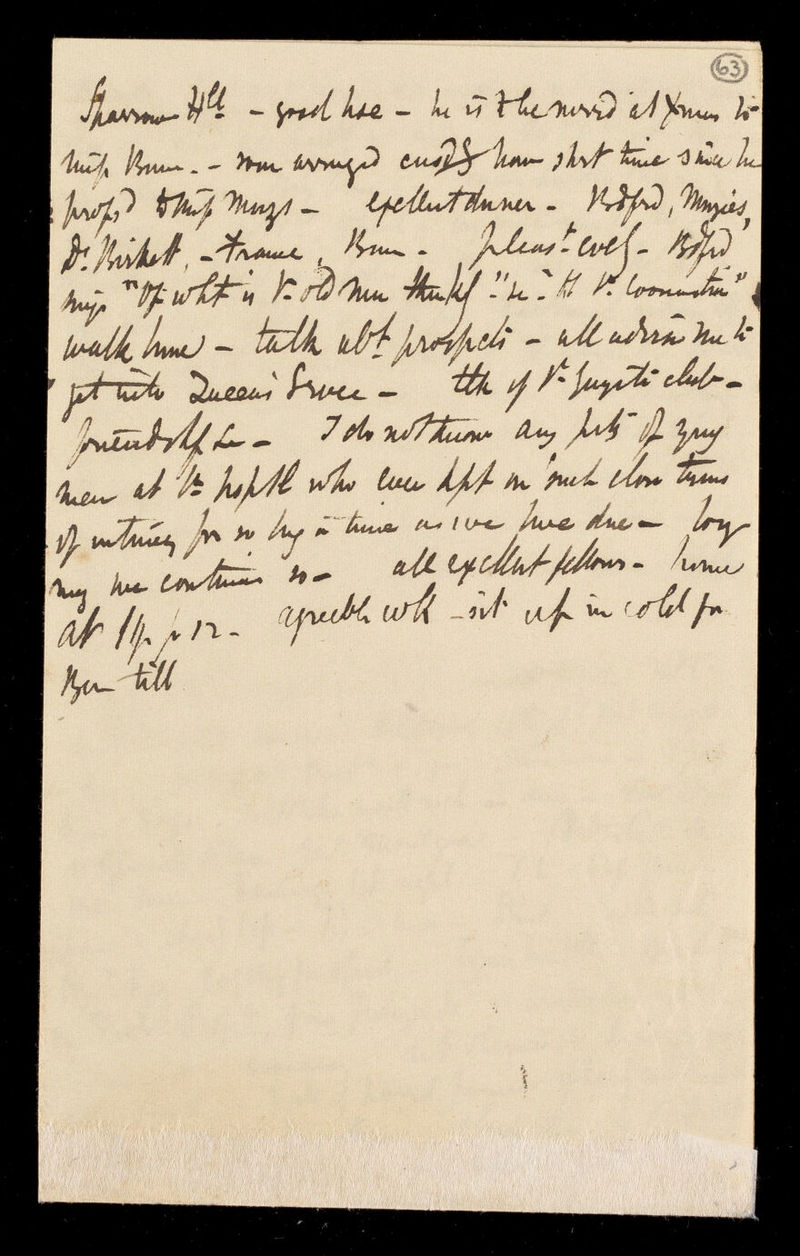 63
Sparrow Hll - good hse - he is to be married at Xmas to
Miss Bum. - soon arranged consdg how short time since he
propsd to Miss - excellent dinner - Bdfrd, Menzies,
Dr. Birkett, - France, Bum - pleast. eveg - Bdfrd
sings "Of what is the old man thinkg" "
walk home - talk abt prospects - all advise me to
get into Queen's Service - tlk of ye club -
friendshp &c - I do not know any of yng
men at ye hsptl who ever kpt on such close terms
of intimcy for so lng a time as we have dne - long
may we continue so - all excellent fellows - home
at 12 - agreeble wlk - sit up in cold for
Ben till